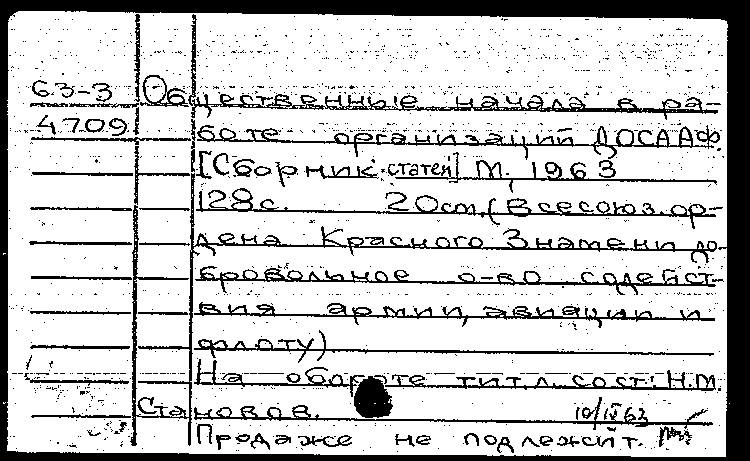 63-3 Общественные начала в ра-
4709 боте организаций ДОСААФ.
[Сборник статей] М., 1963
128с. 20см. (Всесоюз. ор-
дена Красного Знамени до-
бровольное о-во содейст-
вия армии, авиации и
флоту)
На обороте тит. л. сост.: Н.М.
Становов.
10/IV 63
Продаже не подлежит.